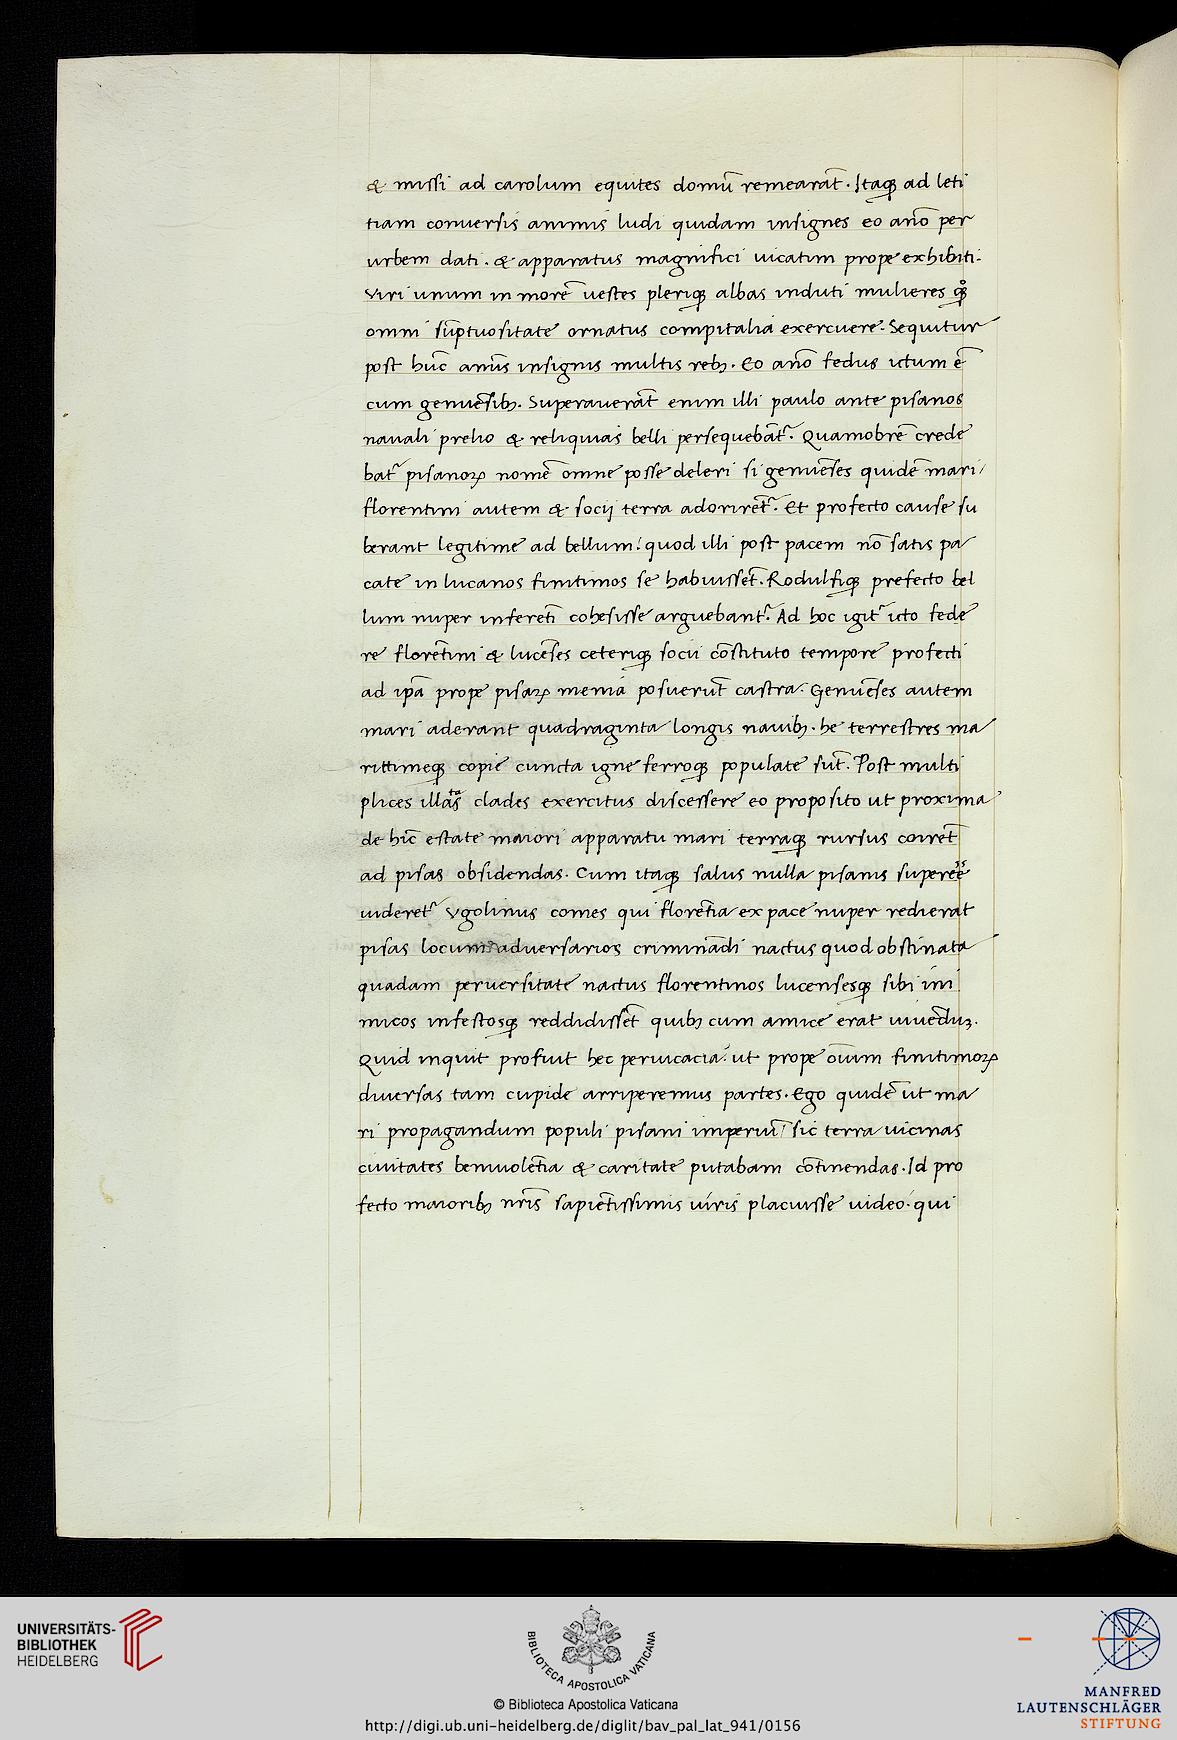 & missi ad carolum equites domū remearāt. Itaq̨ ad leti
tiam conuersis animis ludi quidam insignes eo año per
urbem dati. & apparatus magnifici uicatim prope exhibiti.
Viri unum in morē uestes pleriq̨ albas induti mulieres qͦꝫ
omni sūptuositate ornatus compitalia exercuere. Sequitur
post hūc anūs insignis multis rebꝫ. Eo año fedus ictum ē
cum genuēsibꝫ. Superauerāt enim illi paulo ante pisanos
nauali prelio & reliquias belli persequebāt᷑. Quamobrē crede
bat᷑ pisanoꝝ nomē omne posse deleri si genuēses quidē mari/
florentini autem & socij terra adorirēt᷑. Et profecto cause su
berant legitime ad bellum: quod illi post pacem nō satis pa
cate in lucanos finitimos se habuissēt. Rodulfiq̨ prefecto bel
lum nuper inferēti cohesisse arguebant᷑. Ad hoc igit᷑ icto fede
re florētini & lucēses ceteriq̨ socii cōstituto tempore profecti
ad ipā prope pisaꝝ menia posuerūt castra. Genuēses autem
mari aderant quadraginta longis nauibꝫ. he terrestres ma
rittimeq̨ copie cuncta igne ferroq̨ populate sūt. Post multi
plices illatas clades exercitus discessere eo proposito ut proxima
de hīc estate maiori apparatu mari terraq̨ rursus coirēt
ad pisas obsidendas. Cum itaq̨ salus nulla pisanis superēē
uideret᷑ Vgolinus comes qui florētia ex pace nuper redierat
pisas locum aduersarios crimināđi nactus quod obstinata
quadam peruersitate nactus florentinos lucensesq̨ sibi ini
micos infestosq̨ reddidissēt quibꝫ cum amice erat uiuēdūꝫ.
Quid inquit profuit hec peruicacia: ut prope oīum finitimoꝝ
diuersas tam cupide arriperemus partes. Ego quidē ut ma
ri propagandum populi pisani imperiū/ sic terra uicinas
ciuitates beniuolētia & caritate putabam cōtinendas. Id pro
fecto maioribꝫ nr̄is sapiētissimis uiris placuisse uideo. qui
UNIVERSITÄTS-
BIBLIOTHEK
HEIDELBERG
BIBLIOTECA APOSTOLICA VATICANA
© Biblioteca Apostolica Vaticana
http://digi.ub.uni-heidelberg.de/diglit/bav_pal_lat_941/0156
MANFRED
LAUTENSCHLÄGER
STIFTUNG